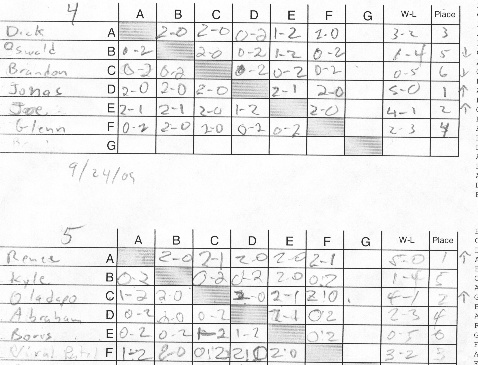 4
A B C D E F G W-L Place
Dick A 2-0 2-0 0-2 1-2 2-0 3-2 3
Oswald B 0-2 2-0 0-2 1-2 0-2 1-4 5 ↓
Brandon C 0-2 0-2 0-2 0-2 0-2 0-5 6 ↓
Jonas D 2-0 2-0 2-0 2-1 2-0 5-0 1 ↑
Joe E 2-1 2-1 2-0 1-2 2-0 4-1 2 ↑
Glenn F 0-2 2-0 2-0 0-2 0-2 2-3 4
G
9/24/09
5
A B C D E F G W-L Place
Renee A 2-0 2-1 2-0 2-0 2-1 5-0 1 ↑
Kyle B 0-2 0-2 0-2 2-0 0-2 1-4 5
Oladapo C 1-2 2-0 2-0 2-1 2-0 4-1 2 ↑
Abraham D 0-2 2-0 0-2 2-1 0-2 2-3 4
Boris E 0-2 0-2 1-2 1-2 0-2 0-5 6
Viral Patel F 1-2 2-0 0-2 2-0 2-0 3-2 3